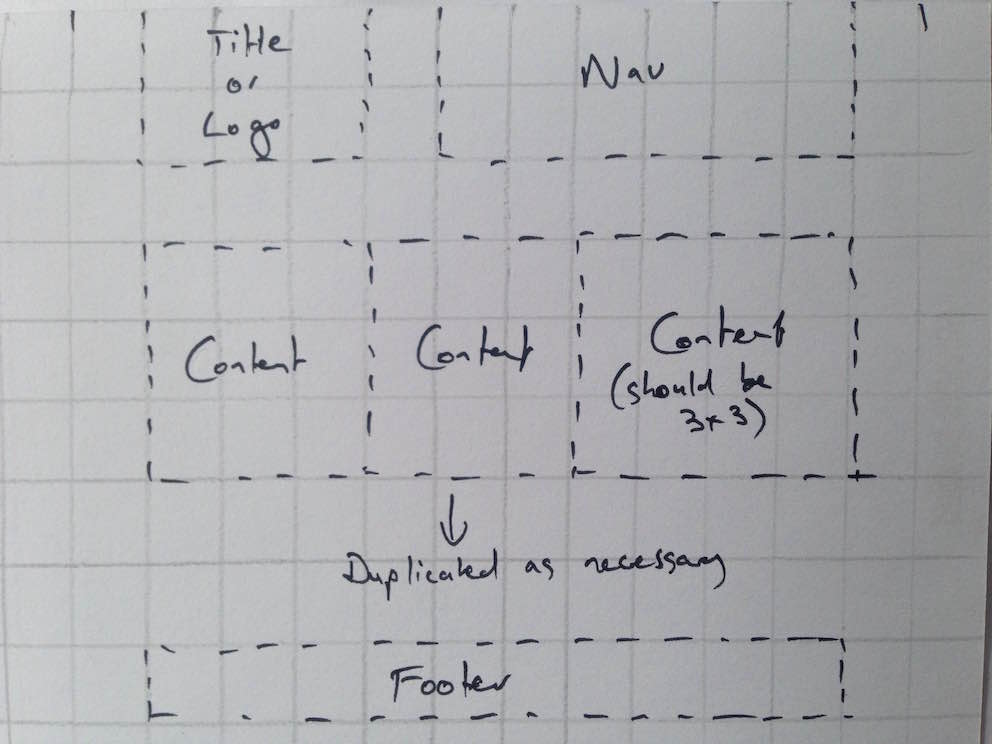 Title
or
Logo
Nav
Content
Content
Content
(should be
3x3)
Duplicated as necessary
Footer